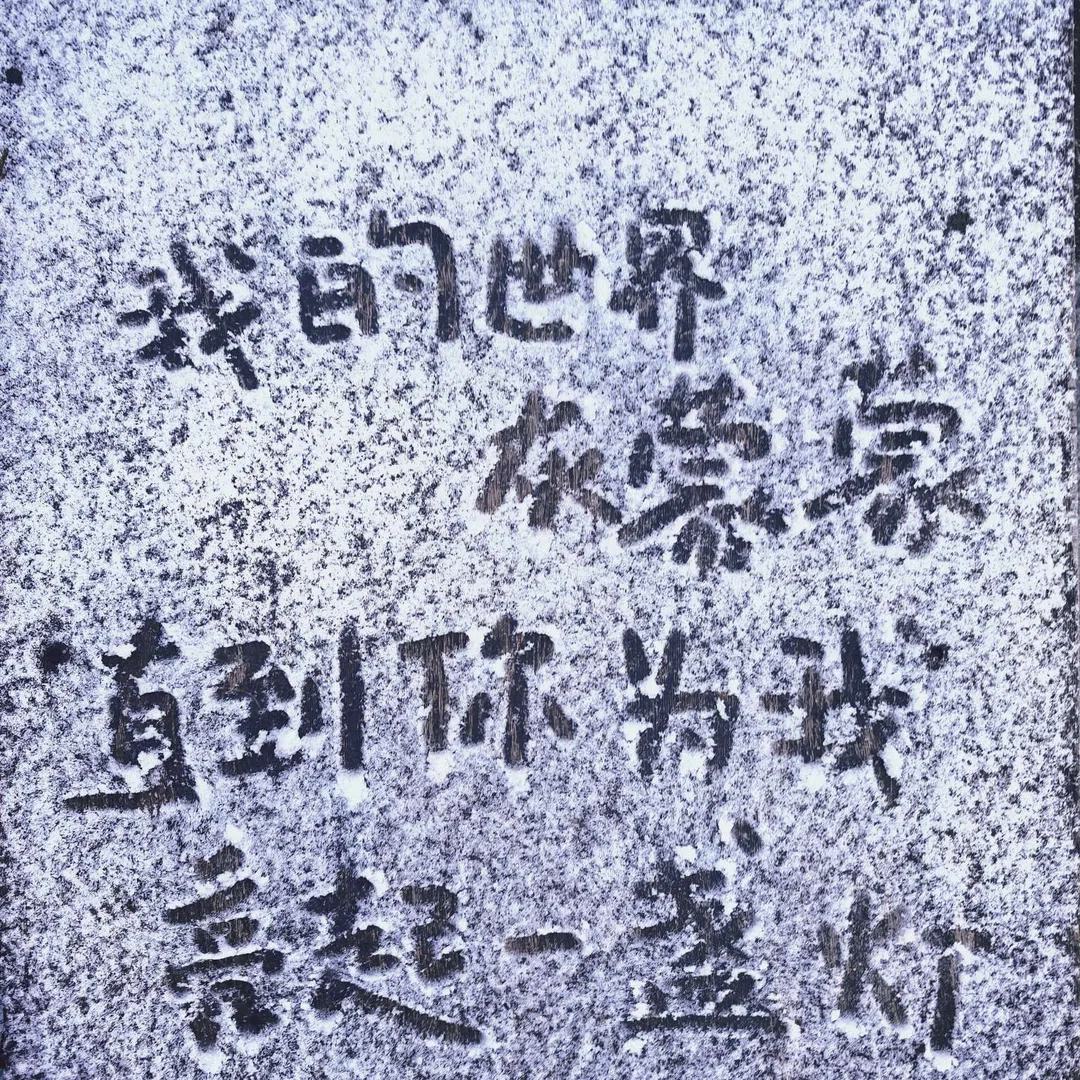 我的世界
灰蒙蒙
直到你为我
亮起一盏灯